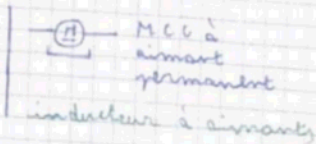 M
MCC à
aimant
permanent
inducteur à aimants